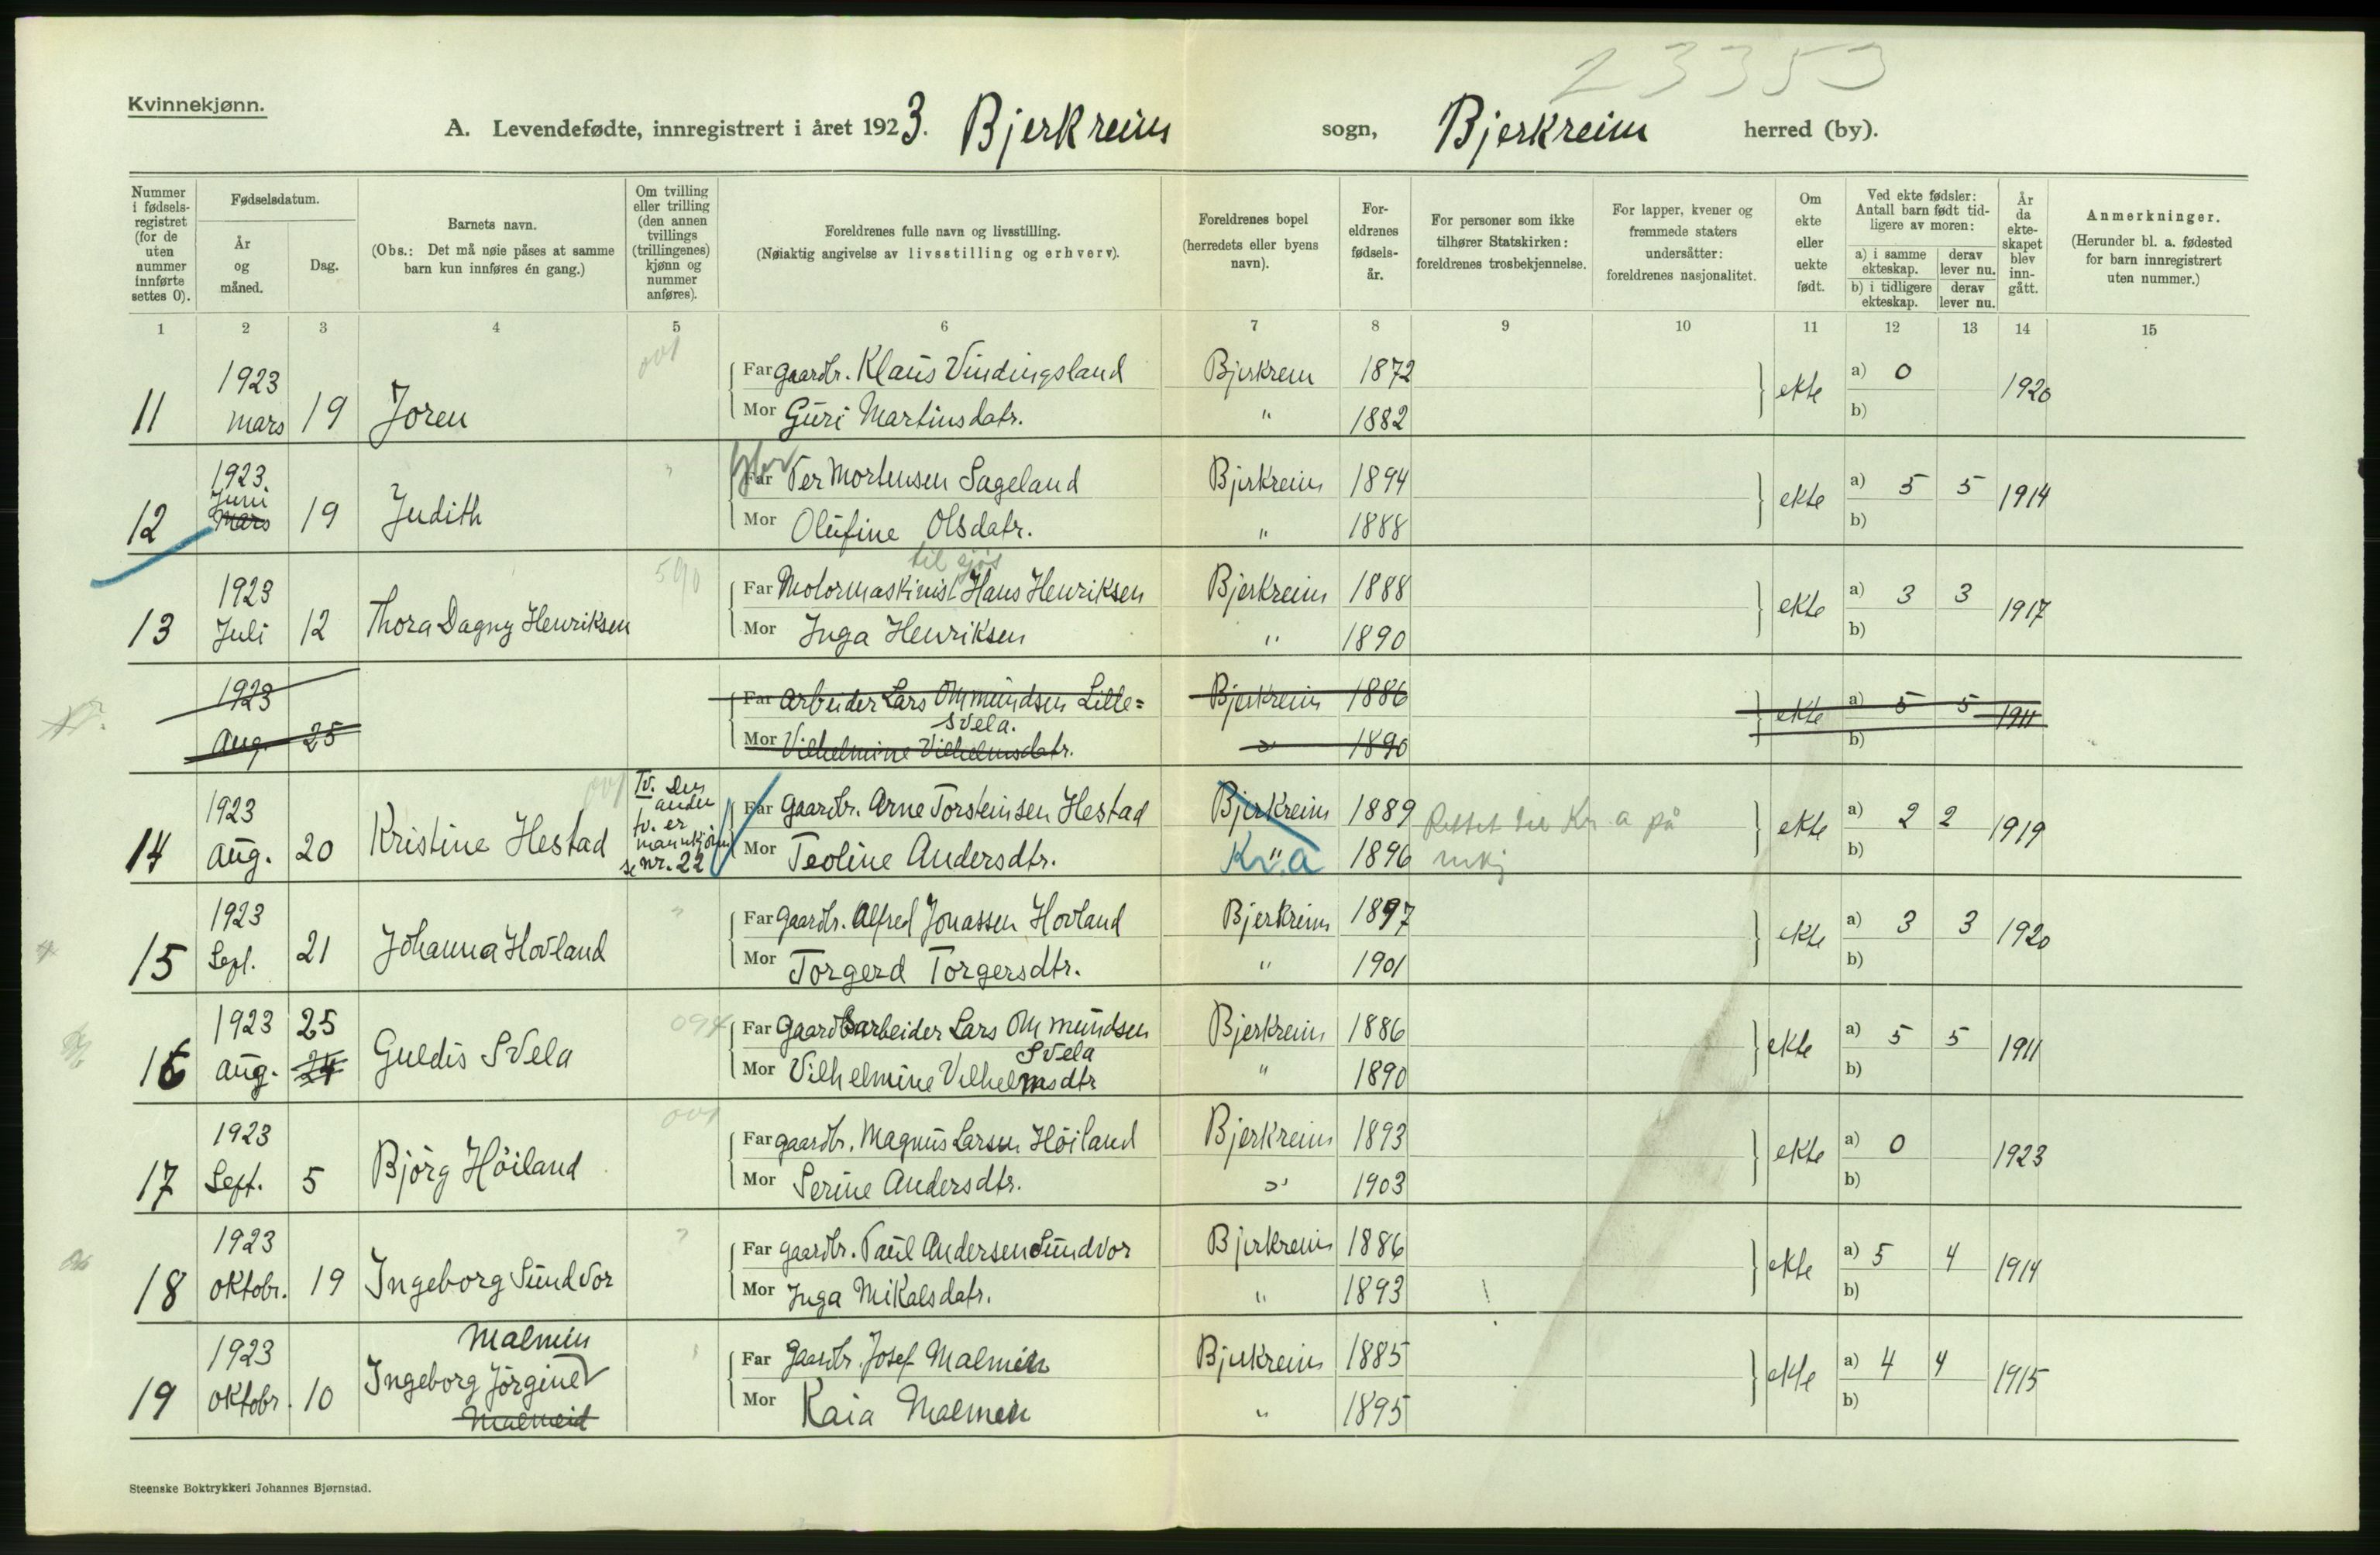 23353
Kvinnekjønn.
A. Levendefødte, innregistrert i året 1923. Bjerkreim sogn, Bjerkreim herred (by).
Nummer i fødsels-registret (for de uten nummer innførte settes 0).
Fødselsdatum.
År og måned.
Dag.
Barnets navn.
(Obs.: Det må nøie påses at samme barn kun innføres én gang.)
Om tvilling eller trilling (den annen tvillings (trillingenes) kjønn og nummer anføres).
Foreldrenes fulle navn og livsstilling.
(Nøiaktig angivelse av livsstilling og erhverv).
Foreldrenes bopel (herredets eller byens navn).
For-eldrenes fødsels-år.
For personer som ikke tilhører Statskirken: foreldrenes trosbekjennelse.
For lapper, kvener og fremmede staters undersåtter: foreldrenes nasjonalitet.
Om ekte eller uekte født.
Ved ekte fødsler: Antall barn født tid-ligere av moren:
a) i samme ekteskap.
derav lever nu.
b) i tidligere ekteskap.
derav lever nu.
År da ekte-skapet blev inn-gått.
Anmerkninger.
(Herunder bl. a. fødested for barn innregistrert uten nummer.)
1 2 3 4 5 6 7 8 9 10 11 12 13 14 15
11 1923 mars 19 Joren Far gaardbr. Klaus Vindingsland Bjerkrem 1872 ekte a) 0 1920
Mor Guri Martinsdatr. " 1882 b)
12 1923. Juni Mars 19 Judith Far Per Mortensen Sageland Bjerkreim 1894 ekte a) 5 5 1914
Mor Olufine Olsdatr. " 1888 b)
til sjøs
13 1923 Juli 12 Thora Dagny Henriksen 590 Far Motormaskinist Hans Henriksen Bjerkreim 1888 ekte a) 3 3 1917
Mor Inga Henriksen " 1890 b)
1923 Aug. 25 Far Arbeider Lars Ommundsen Lille= Bjerkreim 1886 ekte a) 5 5 1911
Svela.
Mor Vilhelmine Vilhelmsdatr. " 1890 b)
14 1923 Aug. 20 Kristine Hestad Tv. Den anden tv. er mannkjønn se nr. 22 Far Gaardbr. Arne Torsteinsen Hestad Bjerkreim 1889 Rettet til Kr a på ekte a) 2 2 1919
Mor Teoline Andersdtr. " Kr.a 1896 b)
15 1923 Sept. 21 Johanna Hovland Far Gaardbr. Alfred Jonassen Hovland Bjerkreim 1897 ekte a) 3 3 1920
Mor Torgerd Torgersdtr. " 1901 b)
16 1923 Aug. 25 24 Guldis Svela 094 Far Gaardsarbeider Lars Ommundsen Bjerkreim 1886 ekte a) 5 5 1911
Svela
Mor Vilhelmine Vilhelmsdtr " 1890 b)
17 1923 Sept. 5 Bjørg Höiland Far gaardbr. Magnus Larsen Höiland Bjerkreim 1893 ekte a) 0 1923
Mor Serine Andersdtr. " 1903 b)
18 1923 oktobr. 19 Ingeborg Sundvor Far gaardbr. Paul Andersen Sundvor Bjerkreim 1886 ekte a) 5 4 1914
Mor Inga Mikalsdatr. " 1893 b)
19 1923 oktobr. 10 Malmin Ingeborg Jörgine Malmeid Far gaardbr. Josef Malmin Bjerkreim 1885 ekte a) 4 4 1915
Mor Kaia Malmin " 1895 b)
Steenske Boktrykkeri Johannes Bjørnstad.